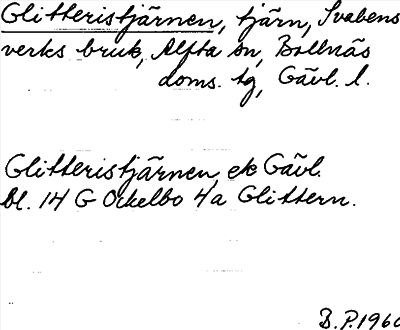 Glitteristjärnen, tjärn, Svabens
verks bruk, Alfta sn, Bollnäs
doms. tg, Gävl. l.
Glitteristjärnen, ek Gävl.
bl. 14 G Ockelbo 4a Glittern.
B.P. 1960